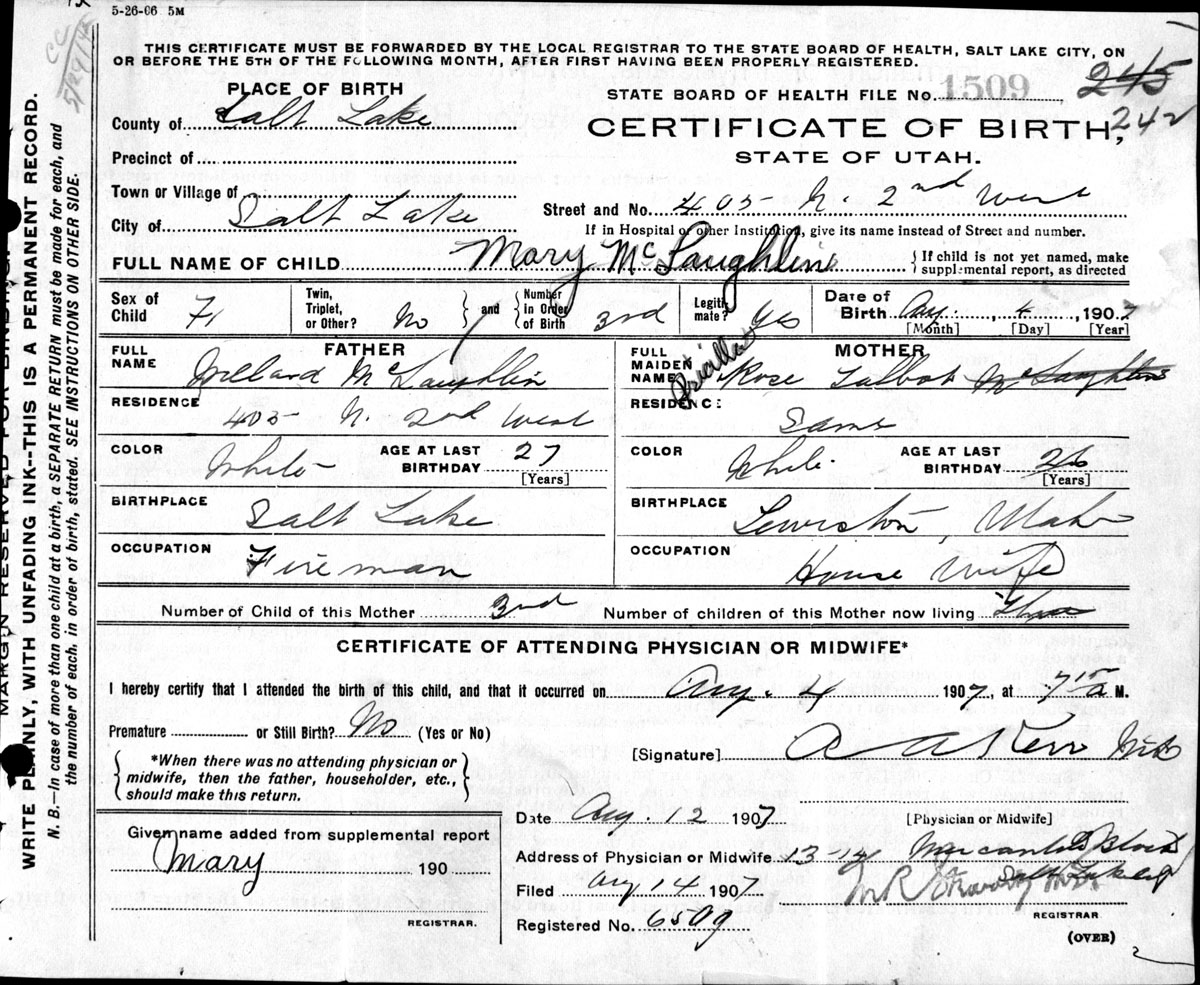 5-26-06 5M
CC
5/29/42
THIS CERTIFICATE MUST BE FORWARDED BY THE LOCAL REGISTRAR TO THE STATE BOARD OF HEALTH, SALT LAKE CITY, ON
OR BEFORE THE 5TH OF THE FOLLOWING MONTH, AFTER FIRST HAVING BEEN PROPERLY REGISTERED.
PLACE OF BIRTH
STATE BOARD OF HEALTH FILE No. 1509 245
County of Salt Lake
CERTIFICATE OF BIRTH, 242
Precinct of
STATE OF UTAH.
Town or Village of
Street and No. 405 N. 2nd West
City of Salt Lake
If in Hospital or other Institution, give its name instead of Street and number.
FULL NAME OF CHILD Mary McLaughlin { If child is not yet named, make supplemental report, as directed
Sex of Child F. Twin, Triplet, or Other? No } and { Number in Order of Birth 3rd Legitimate? Yes Date of Birth Aug. 4, 1907
[Month] [Day] [Year]
FATHER MOTHER
FULL NAME Willard McLaughlin FULL MAIDEN NAME Pricilla Rose Talbot McLaughlin
RESIDENCE 405 N. 2nd West RESIDENCE: Same
COLOR White AGE AT LAST BIRTHDAY 27 [Years] COLOR White AGE AT LAST BIRTHDAY 26 [Years]
BIRTHPLACE Salt Lake BIRTHPLACE Lewiston, Utah
OCCUPATION Fireman OCCUPATION House Wife
Number of Child of this Mother 3rd Number of children of this Mother now living Three
CERTIFICATE OF ATTENDING PHYSICIAN OR MIDWIFE*
I hereby certify that I attended the birth of this child, and that it occurred on Aug. 4 1907, at 7 15 a M.
Premature or Still Birth? No (Yes or No)
[Signature] A A Kerr MD
*When there was no attending physician or
midwife, then the father, householder, etc.,
should make this return.
Date Aug. 12 1907 [Physician or Midwife]
Given name added from supplemental report
Mary 190
Address of Physician or Midwife 13-14 Mercantile Block
Salt Lake
Filed Aug 14 1907
REGISTRAR.
REGISTRAR
Registered No. 6509
(OVER)
2
MARGIN RESERVED FOR BINDING
WRITE PLAINLY, WITH UNFADING INK--THIS IS A PERMANENT RECORD.
N. B.—In case of more than one child at a birth, a SEPARATE RETURN must be made for each, and
the number of each, in order of birth, stated. SEE INSTRUCTIONS ON OTHER SIDE.